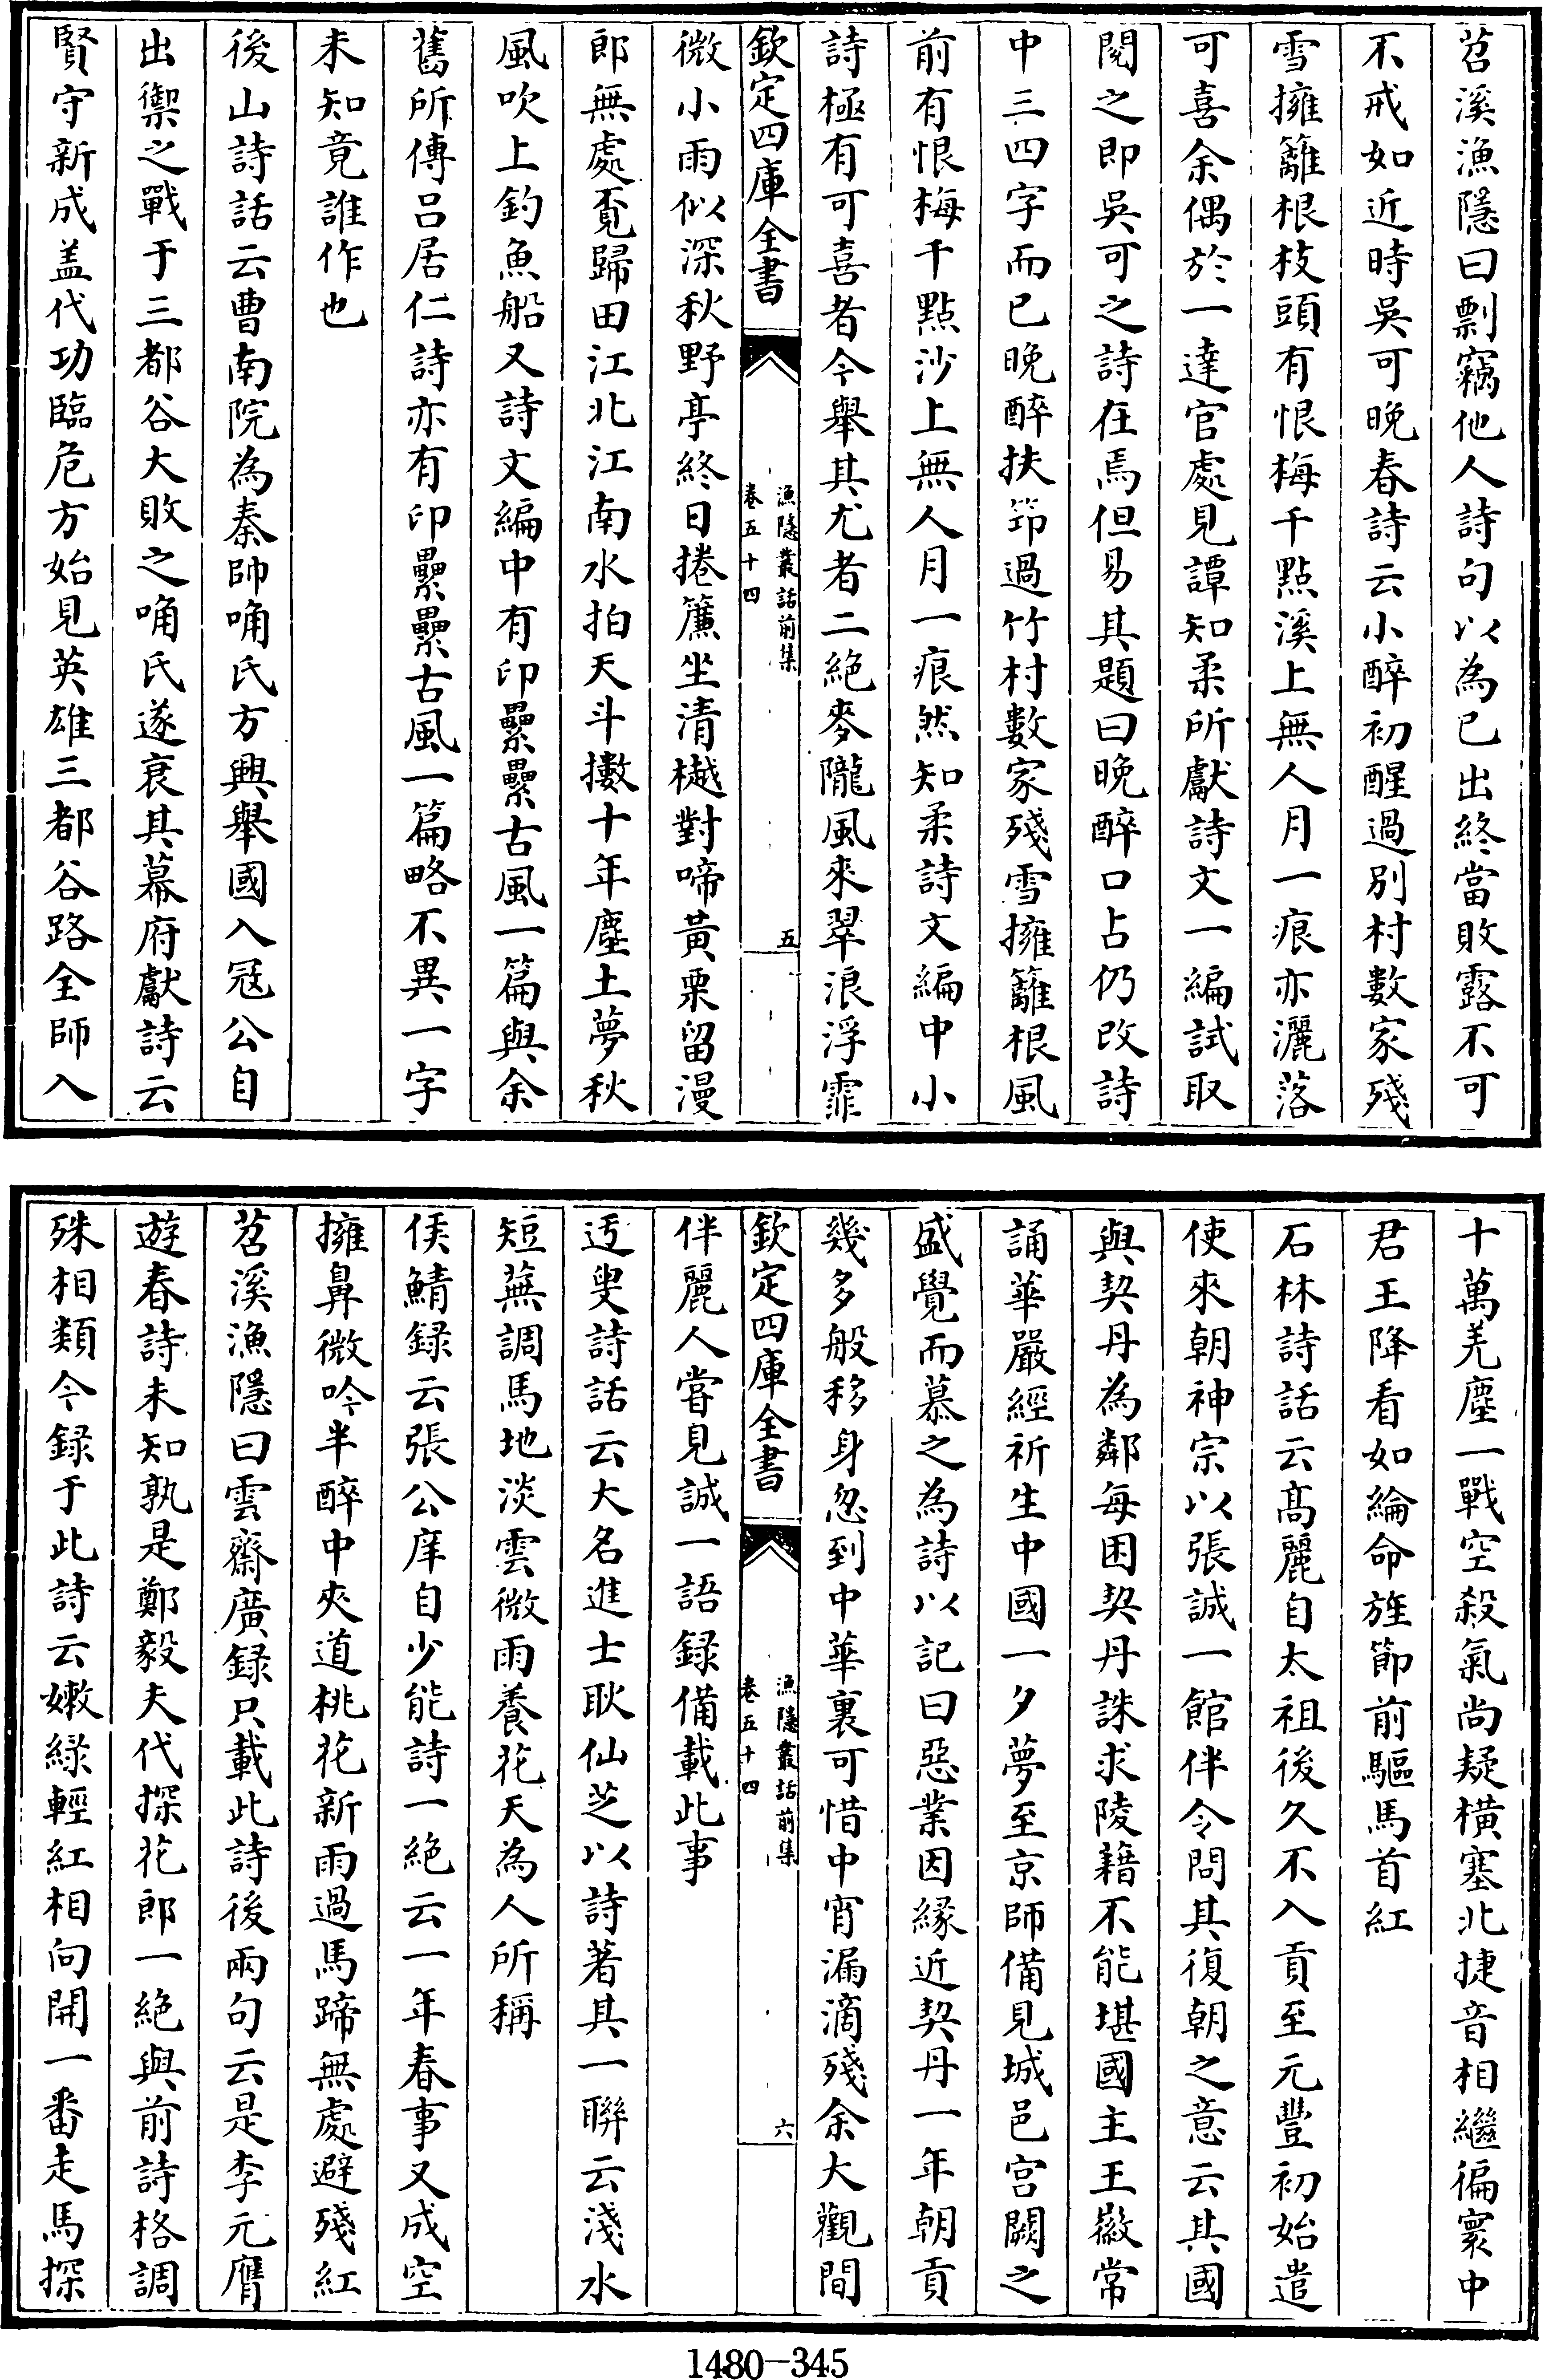 苕溪漁隱曰剽竊他人詩句以為已出終當敗露不可
不戒如近時吳可晚春詩云小醉初醒過別村數家殘
雪擁籬根枝頭有恨梅千點溪上無人月一痕亦灑落
可喜余偶於一達官處見譚知柔所獻詩文一編試取
閱之即吳可之詩在焉但易其題曰晚醉口占仍改詩
中三四字而已晚醉扶筇過竹村數家殘雪擁籬根風
前有恨梅千點沙上無人月一痕然知柔詩文編中小
詩極有可喜者今舉其尤者二絶麥隴風來翠浪浮霏
欽定四庫全書
漁隱叢話前集
卷五十四
五
微小雨似深秋野亭終日捲簾坐清樾對啼黃栗留漫
郎無處覓歸田江北江南水拍天斗擻十年塵土夢秋
風吹上釣魚船又詩文編中有印纍纍古風一篇與余
舊所傳呂居仁詩亦有印纍纍古風一篇略不異一字
未知竟誰作也
後山詩話云曹南院為秦帥唃氏方興舉國入冦公自
出禦之戰于三都谷大敗之唃氏遂衰其幕府獻詩云
賢守新成盖代功臨危方始見英雄三都谷路全師入
十萬羌塵一戰空殺氣尚疑橫塞北捷音相繼徧寰中
君王降看如綸命旌節前驅馬首紅
石林詩話云髙麗自太祖後久不入貢至元豐初始遣
使來朝神宗以張誠一館伴令問其復朝之意云其國
與契丹為鄰每困契丹誅求陵藉不能堪國主王徽常
誦華嚴經祈生中國一夕夢至京師備見城邑宫闕之
盛覺而慕之為詩以記曰惡業因緣近契丹一年朝貢
幾多般移身忽到中華裏可惜中宵漏滴殘余大觀間
欽定四庫全書
漁隱叢話前集
卷五十四
六
伴麗人嘗見誠一語録備載此事
迃叟詩話云大名進士耿仙芝以詩著其一聯云淺水
短蕪調馬地淡雲微雨養花天為人所稱
侯鯖録云張公庠自少能詩一絶云一年春事又成空
擁鼻微吟半醉中夾道桃花新雨過馬蹄無處避殘紅
苕溪漁隱曰雲齋廣録只載此詩後兩句云是李元膺
遊春詩未知孰是鄭毅夫代探花郎一絶與前詩格調
殊相類今録于此詩云嫩緑輕紅相向開一番走馬探
1480-345